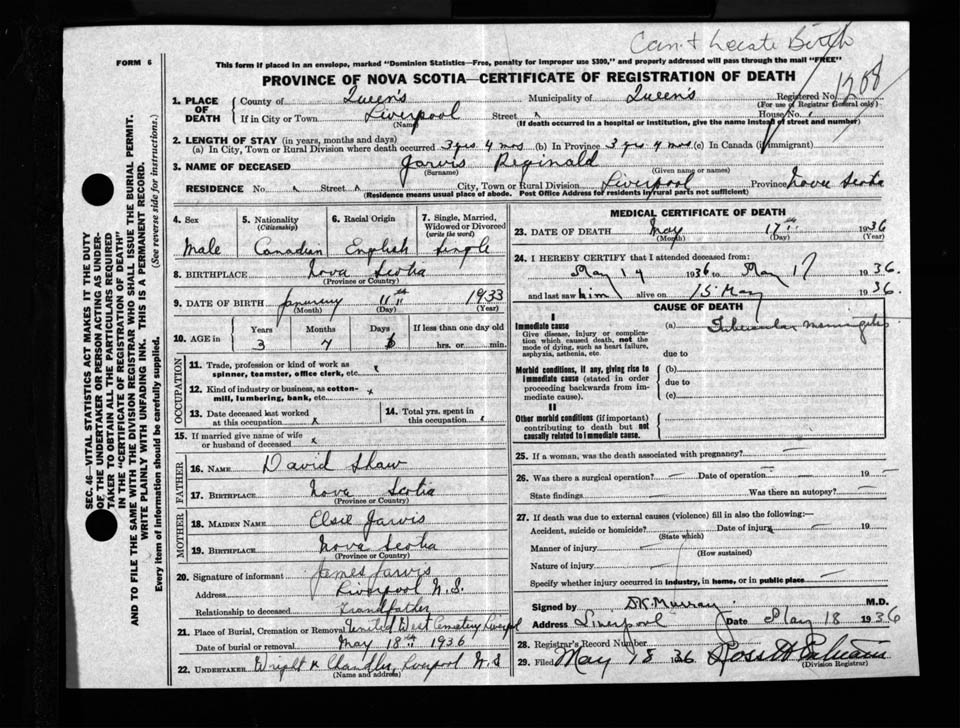 Can't Locate Birth
FORM 6
This form if placed in an envelope, marked "Dominion Statistics—Free, penalty for improper use $300," and properly addressed will pass through the mail "FREE"
PROVINCE OF NOVA SCOTIA—CERTIFICATE OF REGISTRATION OF DEATH
Registered No. 1208
(For use of Registrar General only)
1. PLACE OF DEATH
County of Queen's Municipality of Queen's
If in City or Town Liverpool Street x House No.
(Name) (If death occurred in a hospital or institution, give the name instead of street and number)
2. LENGTH OF STAY (in years, months and days)
(a) In City, Town or Rural Division where death occurred 3 yrs 4 mos (b) In Province 3 yrs 4 mos (c) In Canada (if immigrant)
3. NAME OF DECEASED Jarvis Reginald
(Surname) (Given name or names)
RESIDENCE No. x Street x City, Town or Rural Division Liverpool Province Nova Scotia
(Residence means usual place of abode. Post Office Address for residents in rural parts not sufficient)
4. Sex
Male
5. Nationality (Citizenship)
Canadian
6. Racial Origin
English
7. Single, Married, Widowed or Divorced (write the word)
Single
8. BIRTHPLACE Nova Scotia
(Province or Country)
9. DATE OF BIRTH January 11th 1933
(Month) (Day) (Year)
10. AGE in
Years Months Days If less than one day old
3 4 6 hrs. or min.
OCCUPATION
11. Trade, profession or kind of work as spinner, teamster, office clerk, etc.
12. Kind of industry or business, as cotton-mill, lumbering, bank, etc. x
13. Date deceased last worked at this occupation x
14. Total yrs. spent in this occupation
15. If married give name of wife or husband of deceased x
FATHER
16. NAME David Shaw
17. BIRTHPLACE Nova Scotia
(Province or Country)
MOTHER
18. MAIDEN NAME Elsie Jarvis
19. BIRTHPLACE Nova Scotia
(Province or Country)
20. Signature of informant James Jarvis
Address Liverpool N.S.
Relationship to deceased Grandfather
21. Place of Burial, Cremation or Removal United West Cemetery Liverpool
Date of burial or removal May 18th 1936
22. UNDERTAKER Wright & Chandler, Liverpool N.S
(Name and address)
MEDICAL CERTIFICATE OF DEATH
23. DATE OF DEATH May 17th 1936
(Month) (Day) (Year)
24. I HEREBY CERTIFY that I attended deceased from:
May 14 1936 to May 17 1936.
and last saw him alive on 15 May 1936.
CAUSE OF DEATH
I
Immediate cause
Give disease, injury or complication which caused death, not the mode of dying, such as heart failure, asphyxia, asthenia, etc.
(a) Tubercular meningitis
due to
Morbid conditions, if any, giving rise to immediate cause (stated in order proceeding backwards from immediate cause).
(b)
due to
(c)
II
Other morbid conditions (if important) contributing to death but not causally related to immediate cause.
25. If a woman, was the death associated with pregnancy?
26. Was there a surgical operation? Date of operation 19
State findings Was there an autopsy?
27. If death was due to external causes (violence) fill in also the following:—
Accident, suicide or homicide? Date of injury 19
(State which)
Manner of injury
(How sustained)
Nature of injury
Specify whether injury occurred in industry, in home, or in public place
Signed by D.K. Murray M.D.
Address Liverpool Date May 18 1936
28. Registrar's Record Number
29. Filed May 18 36
(Division Registrar)
SEC. 46—VITAL STATISTICS ACT MAKES IT THE DUTY
OF THE UNDERTAKER OR PERSON ACTING AS UNDER-
TAKER TO OBTAIN ALL THE PARTICULARS REQUIRED
IN THE "CERTIFICATE OF REGISTRATION OF DEATH"
AND TO FILE THE SAME WITH THE DIVISION REGISTRAR WHO SHALL ISSUE THE BURIAL PERMIT.
WRITE PLAINLY WITH UNFADING INK. THIS IS A PERMANENT RECORD.
Every item of information should be carefully supplied. (See reverse side for instructions.)